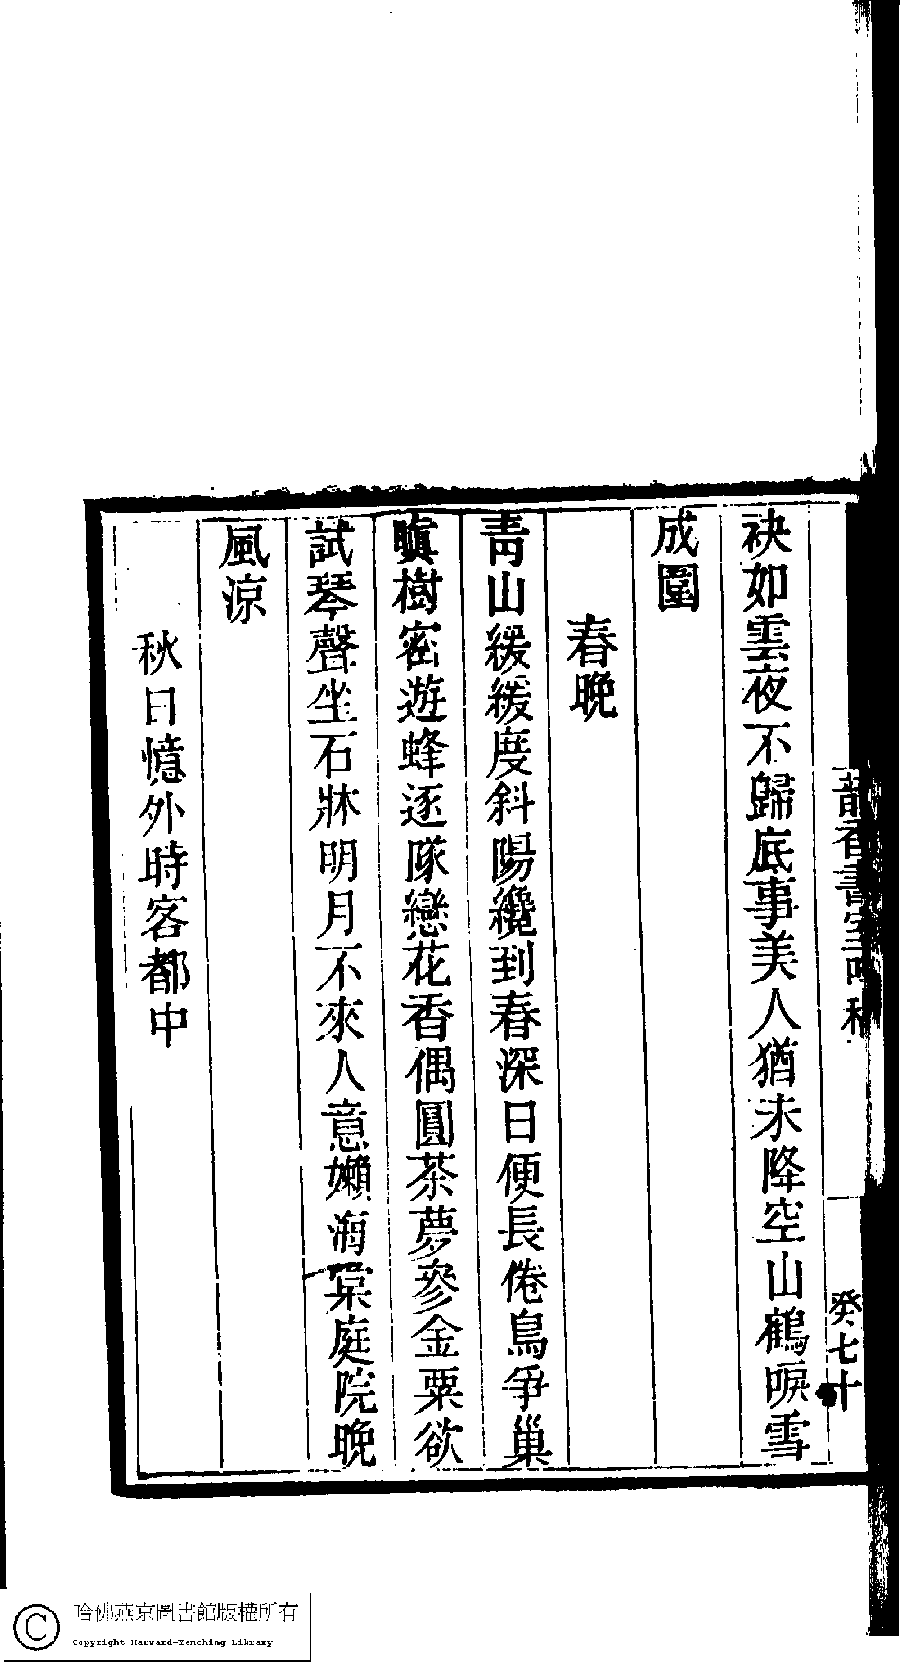 袂如雲夜不歸底事美人猶未降空山鶴唳雪
成圍
春晚
青山緩緩度斜陽纔到春深日便長倦鳥爭巢
瞋樹密遊蜂逐隊戀花香偶圓茶夢參金粟欲
試琴聲坐石牀明月不來人意嬾海棠庭院晚
風涼
秋日憶外時客都中
韻香書室吟稿
癸七十
哈佛燕京圖書館版權所有
Copyright Harvard-Yenching Library